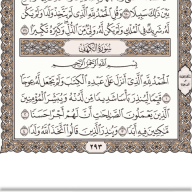 بَيْنَ ذَٰلِكَ سَبِيلًا ۝ وَقُلِ ٱلْحَمْدُ لِلَّهِ ٱلَّذِى لَمْ يَتَّخِذْ وَلَدًا وَلَمْ يَكُن
لَّهُۥ شَرِيكٌ فِى ٱلْمُلْكِ وَلَمْ يَكُن لَّهُۥ وَلِىٌّ مِّنَ ٱلذُّلِّ وَكَبِّرْهُ تَكْبِيرًۢا ۝
سُورَةُ ٱلْكَهْفِ
بِسْمِ ٱللَّهِ ٱلرَّحْمَٰنِ ٱلرَّحِيمِ
ٱلْحَمْدُ لِلَّهِ ٱلَّذِىٓ أَنزَلَ عَلَىٰ عَبْدِهِ ٱلْكِتَٰبَ وَلَمْ يَجْعَل لَّهُۥ عِوَجَا ۜ
۝ قَيِّمًا لِّيُنذِرَ بَأْسًا شَدِيدًا مِّن لَّدُنْهُ وَيُبَشِّرَ ٱلْمُؤْمِنِينَ
ٱلَّذِينَ يَعْمَلُونَ ٱلصَّٰلِحَٰتِ أَنَّ لَهُمْ أَجْرًا حَسَنًا ۝
مَّٰكِثِينَ فِيهِ أَبَدًا ۝ وَيُنذِرَ ٱلَّذِينَ قَالُوا۟ ٱتَّخَذَ ٱللَّهُ وَلَدًا ۝
٢٩٣